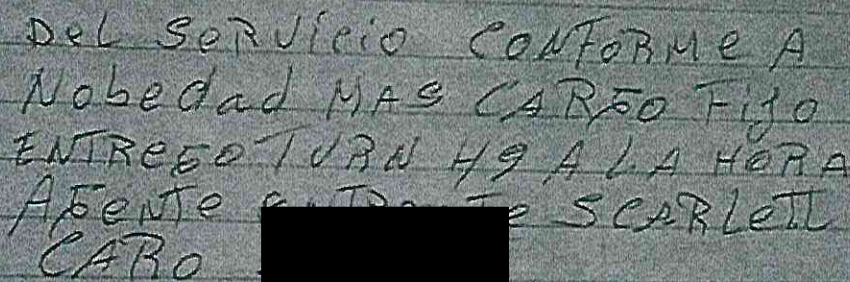 Del SeRVicio CONFORMe A
Nobedad MAS CARGO Fijo
ENTREGO TURN 49 A LA HORA
AGeNTe eNTRaNTe SCARLeTT
CARO